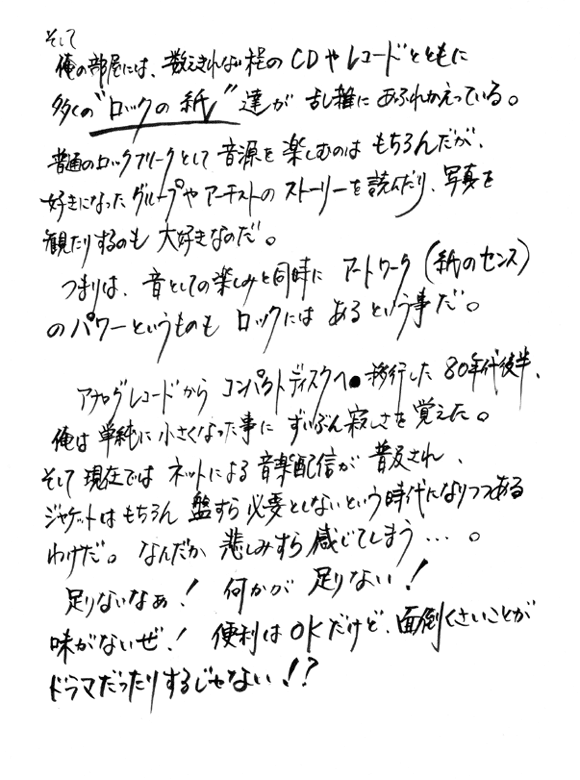 そして
俺の部屋には、数えきれない程のCDやレコードとともに
多くの“ロックの紙”達が乱雑にあふれかえっている。
普通のロックフリークとして音源を楽しむのはもちろんだが、
好きになったグループやアーチストのストーリーを読んだり、写真を
観たりするのも大好きなのだ。
つまりは、音としての楽しみと同時にアートワーク(紙のセンス)
のパワーというものもロックにはあるという事だ。
アナログレコードからコンパクトディスクへ移行した80年代後半、
俺は単純に小さくなった事にずいぶん寂しさを覚えた。
そして現在ではネットによる音楽配信が普及され、
ジャケットはもちろん盤すら必要としないという時代になりつつある
わけだ。なんだか悲しみすら感じてしまう…。
足りないなぁ!何かが足りない!
味がないぜ!便利はOKだけど、面倒くさいことが
ドラマだったりするじゃない!?